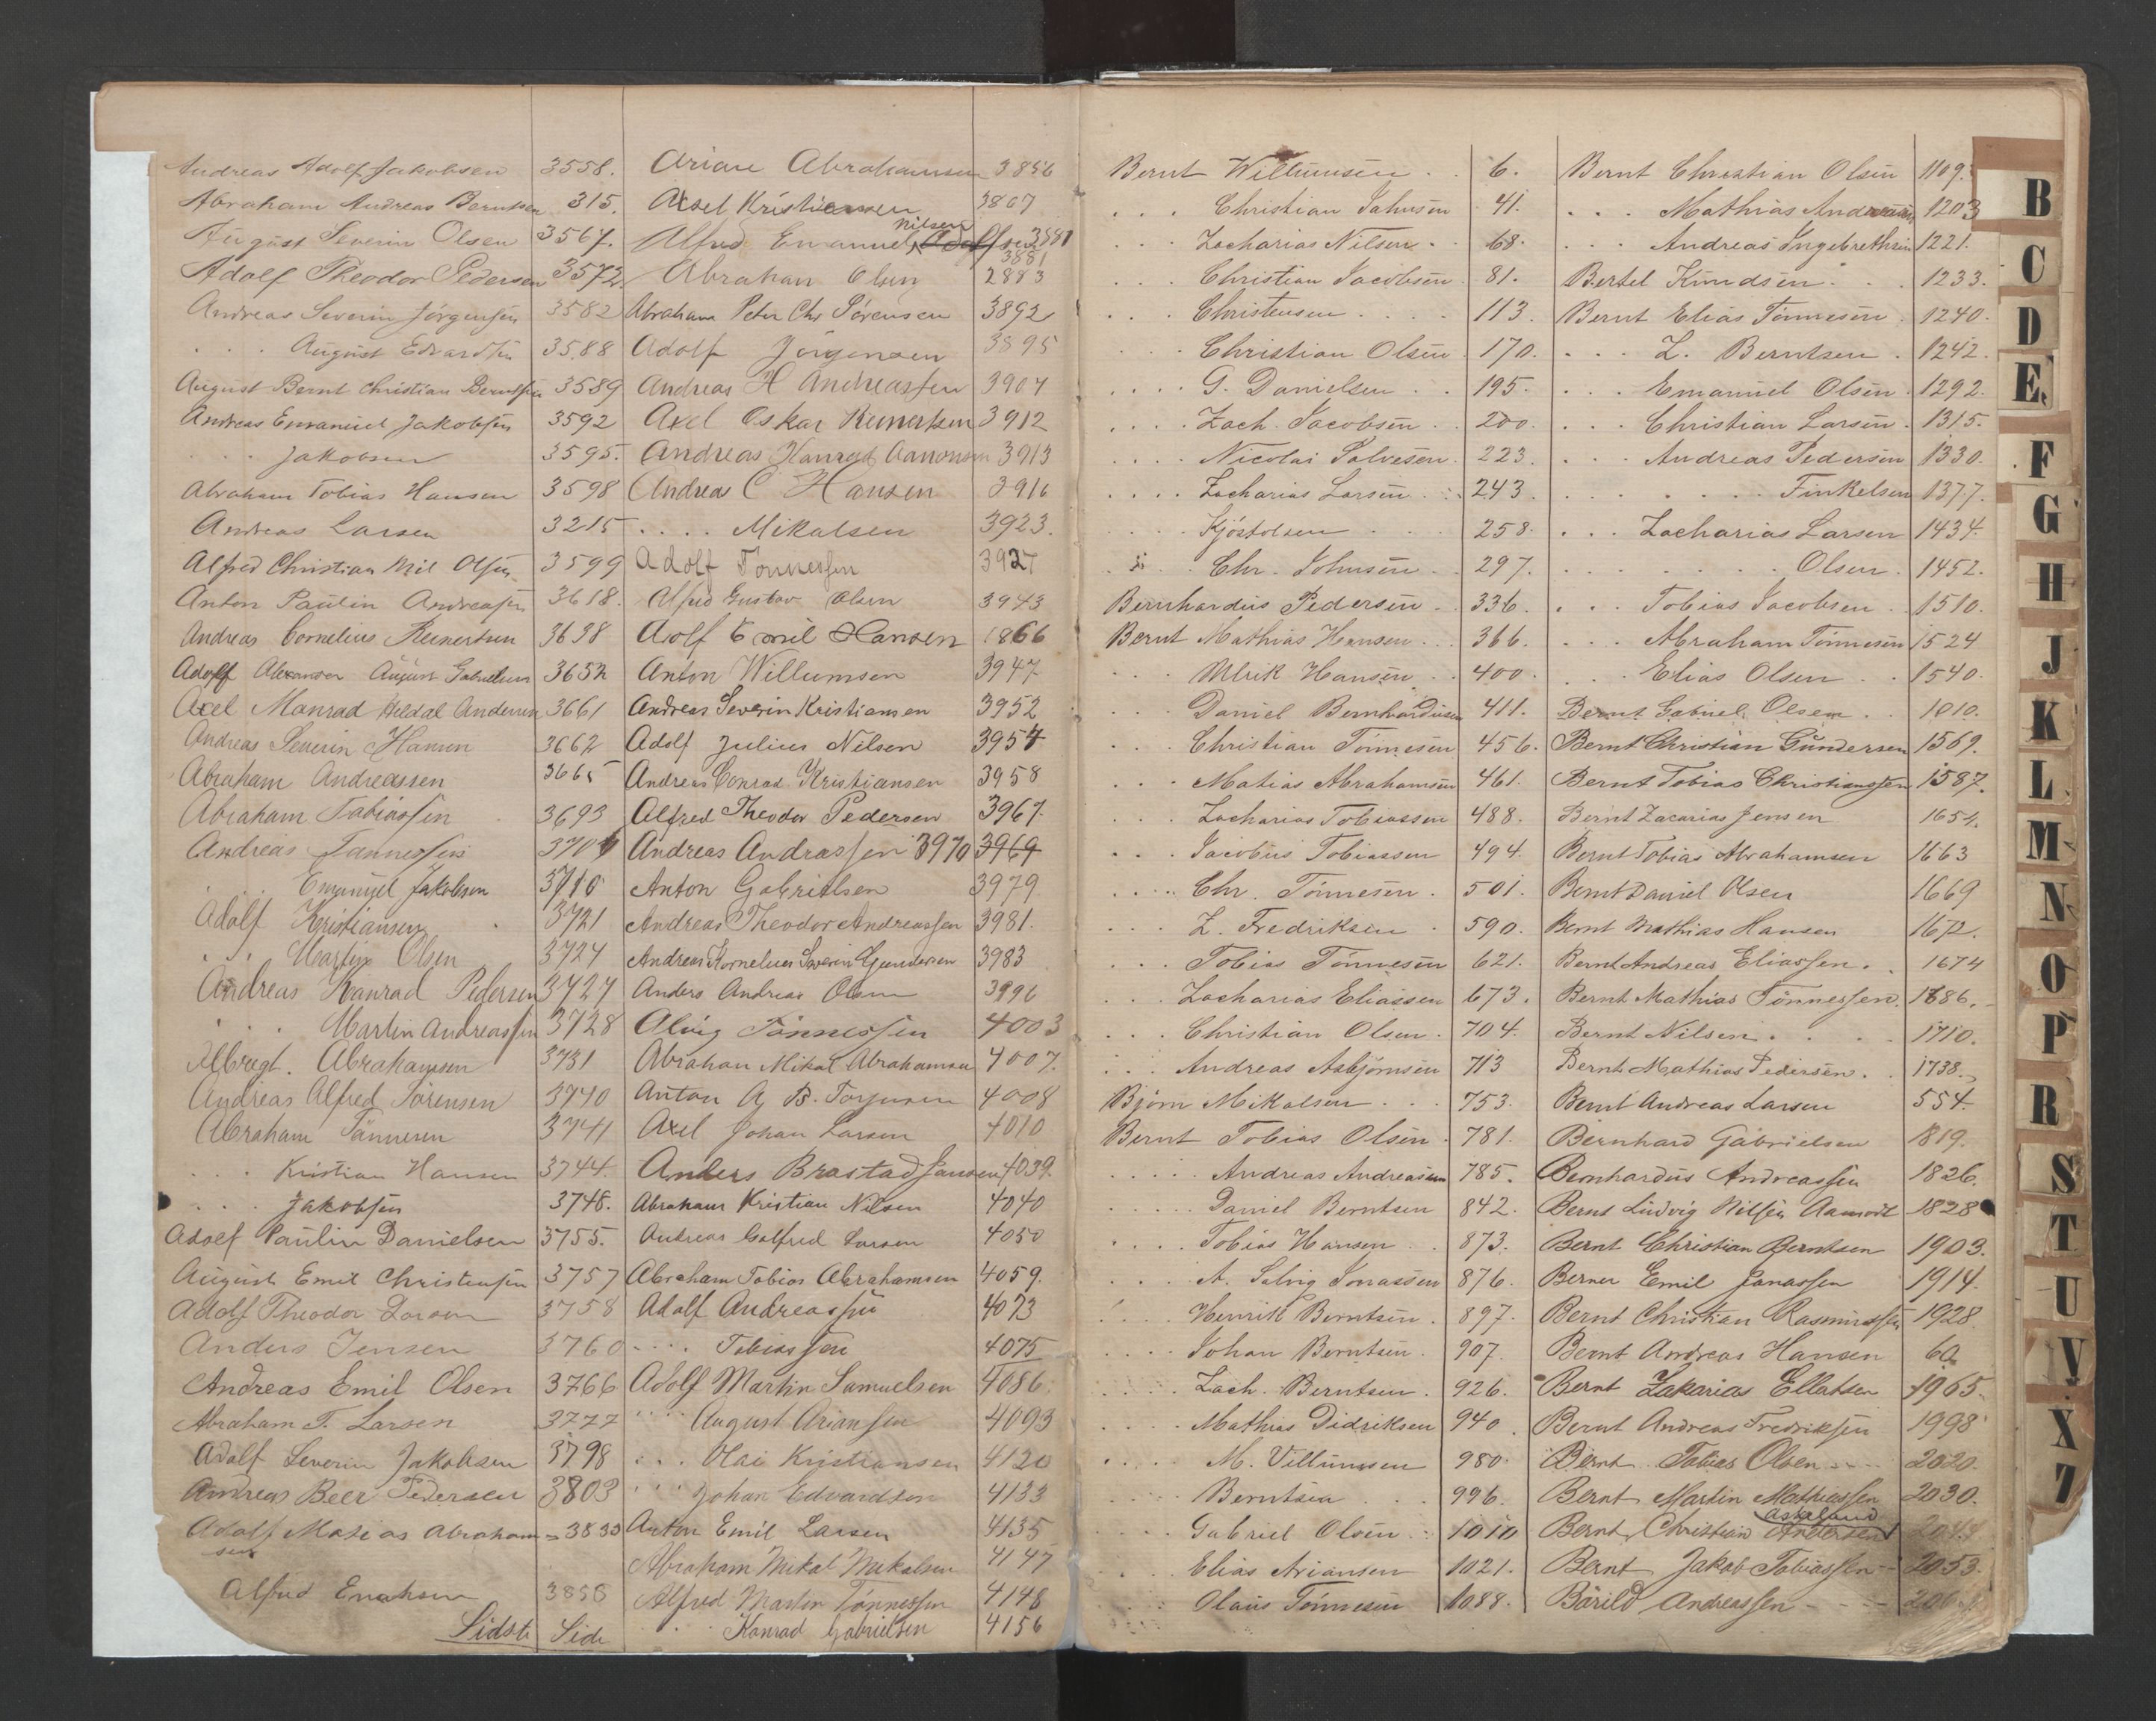 Andreas Adolf Jakobsen 3558.
Abraham Andreas Berntsen 315.
August Severin Olsen 3567.
Adolf Theodor Pedersen 3572
Andreas Severin Jörgensen 3582
. . . August Edvardsen 3588
August Bernt Christian Berntsen 3589
Andreas Emanuel Jakobsen 3592
. . . Jakobsen 3595.
Abraham Tobias Hansen 3598
Andreas Larsen 3215
Alfred Christian Olsen 3599
Anton Paulin Andreasen 3618.
Andreas Cornelius Reinertsen 3638
Adolf Alexander August Gabrielsen 3652
Axel Manrad Andersen 3661
Andreas Severin Hansen 3662
Abraham Andreassen 3665
Abraham Tobiassen 3693
Andreas Tønnessen
. . Emanuel Jakobsen 3710
Adolf Kristiansen 3721
. . . Martin Olsen 3724
Andreas Konrad Pedersen 3727
. . . Martin Andreassen 3728
Albregt. Abrahamsen 3731
Andreas Alfred Sörensen 3740
Abraham Tønnesen 3741
. . . Kristian Hansen 3744.
. . . Jakobsen 3748.
Adolf Paulin Danielsen 3755.
August Emil Christensen 3757
Adolf Theodor Larsen 3758
Anders Jensen 3760
Andreas Emil Olsen 3766
Abraham T. Larsen 3777
Adolf Severin Jakobsen 3798
Andreas Beer Pedersen 3803
Adolf Matias Abraham= 3833
sen
Alfred 3858
Sidste Side
Ariane Abrahamsen 3856
Axel Kristiansen 3867
Nilsen
Alfred Emanuel Adolfsen 3881
3881
Abraham Olsen 2883
Abraham Peter Chr Sørensen 3892
Adolf Jörgensen 3895
Andreas H Andreassen 3904
Axel Oskar Reinertsen 3912
Andreas Aanonsen 3913
Andreas C Hansen 3916
. . . . Mikalsen 3923.
Adolf Tønnessen 3927
Alfred Gustav Olsen 3943
Adolf Emil Hansen 1866
Anton Willumsen 3947
Andreas Severin Kristiansen 3952
Adolf Julius Nilsen 3957
Andreas Conrad Kristiansen 3958
Alfred Theodor Pedersen 3967.
Andreas Andrassen 3970 3969
Anton Gabrielsen 3979
Andreas Theodor Andreassen 3981.
Andreas Kornelius Severin Gundersen 3983
Anders Andreas Olsen 3996
Alvig Tönnessen 4003
Abraham Mikal Abrahamsen 4007.
Anton 4008
Axel Johan Larsen 4010
Anders Brastad Jansen 4039.
Abraham Kristian Nilsen 4040
Andreas Larsen 4050
Abraham Tobias Abrahamsen 4059.
Adolf Andreassen 4073
. . . . Tobiassen 4075
Adolf Martin Samuelsen 4086
" " August Ariansen 4093
. . . Olai Kristiansen 4120
" " Johan Edvardsen 4133
Anton Emil Larsen 4135
Abraham Mikal Mikalsen 4147
Alfred Martin Tønnessen 4148
. . Konrad Gabrielsen 4156
Bernt Willumsen . . 6.
. . . Christian Jahnsen 41.
. . . Zacharias Nilsen . 68.
. . . Christian Jacobsen 81.
. . . Christensen . . . . 113.
. . . Christian Olsen 170.
. . . . G. Danielsen . . 195.
. . . . Zach. Jacobsen . 200.
. . . . Nicolai Salvesen. 223.
. . . . Zacharias Larsen . 243.
. . . Kjöstolsen 258.
. . . Chr. Johnsen . 297.
Bernhardus Pedersen . 336.
Bernt Mathias Hansen . . 366.
. . . Ulrik Hansen . . 400.
. . . Daniel Bernhardusen 411.
. . . Christian Tönnesen 456.
. . . Matias Abrahamsen 461.
. . . Zacharias Tobiassen 488.
. . . Jacobus Tobiassen 494.
. . . . Chr. Tönnesen . 501.
. . . Z. Fredriksen . 590.
. . . Tobias Tönnesen 621.
. . . Zacharias Eliassen 673.
. . . Christian Olsen . 704.
. . . Andreas Asbjörnsen 713
Björn Mikalsen . . . 753.
Bernt Tobias Olsen . 781.
. . . . Andreas Andreasen 785.
. . . . Daniel Berntsen 842.
. . . . Tobias Hansen . . 873.
. . . . A. Salvig Jonassen 876.
. . . . Henrik Berntsen . 897.
. . . . Johan Berntsen . 907.
. . . . Zach. Berntsen . 926.
. . . . Mathias Didriksen 940.
. . . . M. Villumsen 980.
. . . . Berntsen . . . 996.
. . . . Gabriel Olsen . . 1010
. . . . Elias Ariansen 1021.
. . . . Olaus Tönnesen 1088.
Bernt Christian Olsen 1109.
. . . Mathias Andreasen 1203
. . . Andreas Ingebrethsen 1221.
Bertel Knudsen . . . 1233.
Bernt Elias Tönnesen . 1240.
. . . L. Berntsen . 1242.
. . . Emanuel Olsen . 1292.
. . . Christian Larsen . 1315.
. . . Andreas Pedersen 1330.
. . . . . . Finkelsen 1377.
. . . Zacharias Larsen 1434.
. . . . . . Olsen . 1452.
. . . Tobias Jacobsen . 1510.
. . . Abraham Tönnesen 1524
. . . Elias Olsen . . 1540.
Bernt Gabriel Olsen . . 1010.
Bernt Christian Gundersen 1569.
Bernt Tobias Christianssen 1587.
Bernt Zacarias Jensen 1651.
Bernt Tobias Abrahamsen 1663
Bernt Daniel Olsen 1669
Bernt Mathias Hansen 1672.
Bernt Andreas Eliassen . . 1674
Bernt Mathias Tönnessen. 1686.
Bernt Nilsen . . . . 1710.
Bernt Mathias Pedersen . . 1738.
Bernt Andreas Larsen 554.
Bernhard Gabrielsen 1819.
Bernhardus Andreassen 1826.
Bernt Ludvig Nilsen Aamodt 1828
Bernt Christian Berntsen 1903.
Berner Emil Janassen 1914.
Bernt Christian Rasmussen 1928.
Bernt Andreas Hansen 60
Bernt Zakarias Ellatsen 1965.
Bernt Andreas Fredriksen 1998
Bernt Tobias Olsen 2020.
Bernt Martin Mathiassen 2030.
Askeland
Bernt Christian Andersen
Bernt Jakob Tobiassen 2053.
Bärild Andreassen
B
C
D
E
F
G
H
J
K
L
M
N
O
P
R
S
T
U
V
X